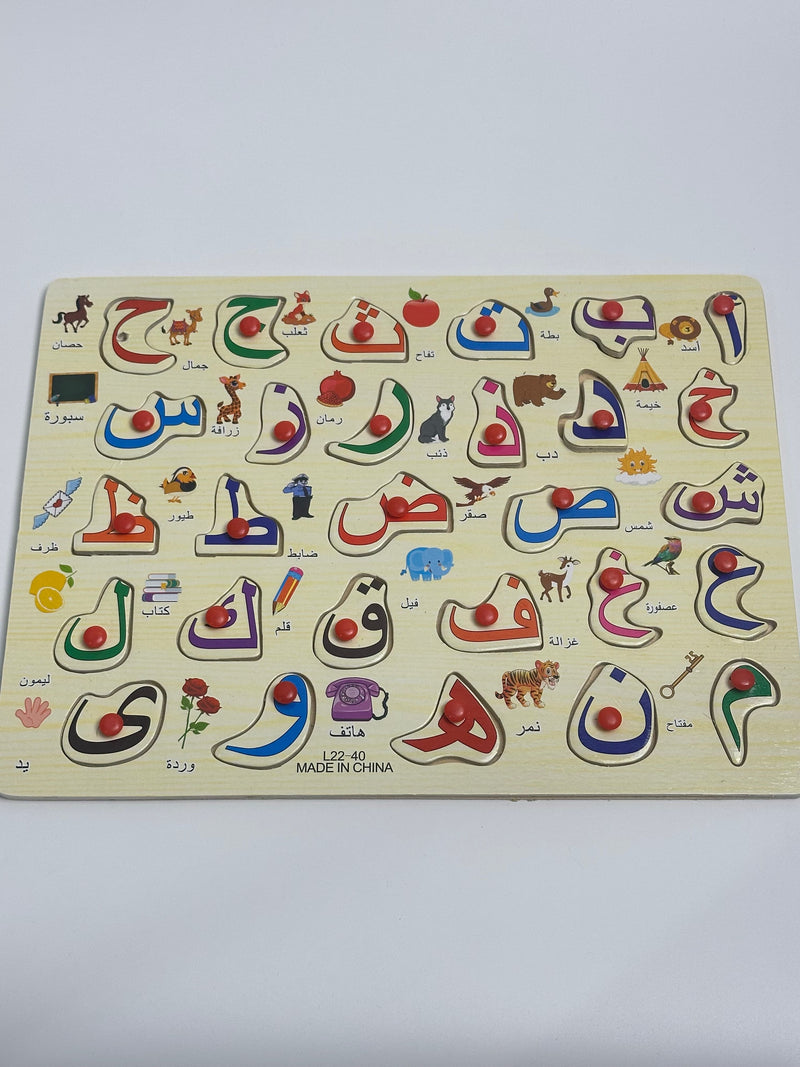 أ ب ت ث ج ح
أسد بطة تفاح ثعلب جمال حصان
خ د ذ ر ز س
خيمة دب ذئب رمان زرافة سبورة
ش ص ض ط ظ
شمس صقر ضابط طيور ظرف
ع غ ف ق ك ل
عصفورة غزالة فيل قلم كتاب ليمون
م ن هـ و ى
مفتاح نمر هاتف وردة يد
L22-40
MADE IN CHINA